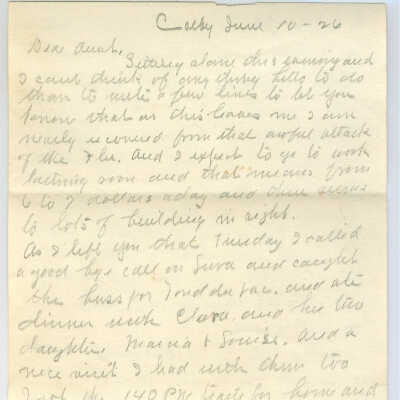 Colby June 10-26
Dear Aunt.
Setting alone this evening and
I cant think of any thing Else to do
than to write a few lines to let you
know that as this leaves me I am
nearly recovered from that awful attack
of the Flu. And I expect to go to work
soon and that means from
6 to 7 dollars a day and there seems
to lots of building in sight.
As I left you that Tuesday I called
a good bye call on and caught
the buss for Fond du Lac. and ate
dinner with Clara. and his two
daughters. & Louise. And a
nice visit I had with them too
I got the 1 40 PM train for home and